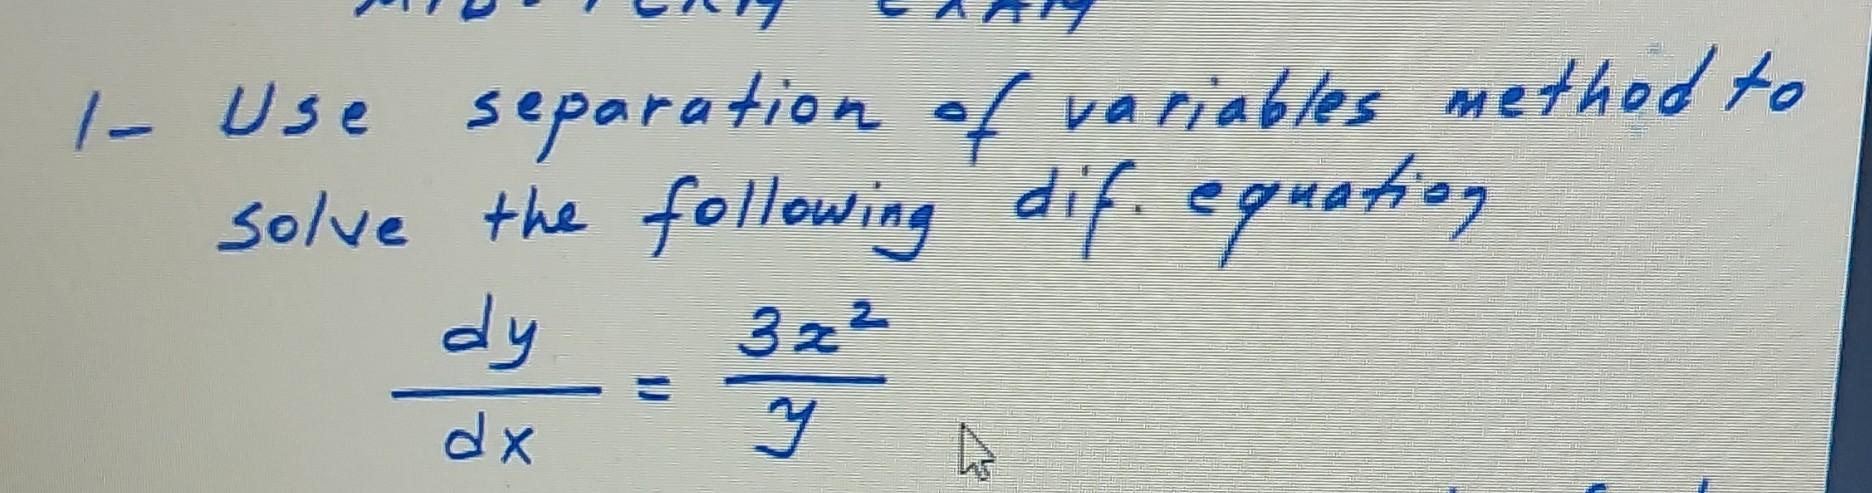 MID-TERM EXAM
1- Use separation of variables method to
solve the following dif. equation
dy/dx = 3x²/y